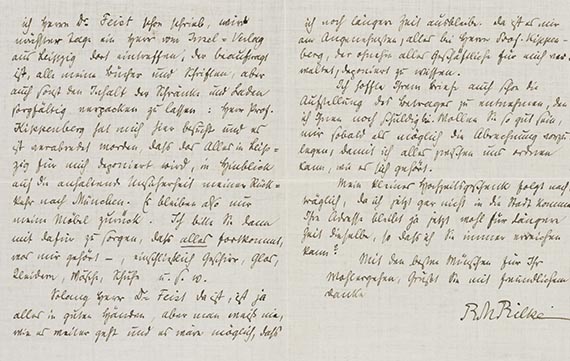 ich Herrn Dr. Feist schon schrieb, wird
nächster Tage ein Herr vom Insel-Verlag
aus Leipzig dort eintreffen, der beauftragt
ist, alle meine Bücher und Schriften, aber
auch sonst den Inhalt der Schränke und Laden
sorgfältig verpacken zu lassen: Herr Prof.
Kippenberg hat mich hier besucht und es
ist verabredet worden, dass das Alles in Leip-
zig für mich deponiert wird, in Hinblick
auf die anhaltend Unsicherheit meiner Rück-
kehr nach München. Es bleiben also nur
meine Möbel zurück. Ich bitte Sie dann
mit dafür zu sorgen, dass alles fortkommt,
was mir gehört –, einschließlich Geschirr, Glas,
Kleider, Wäsche, Schuhe u. s. w.
Solang Herr Dr. Feist da ist, ist ja
alles in guten Händen, aber man weiss nie,
wie es weiter geht und es wäre möglich, dass
ich noch längere Zeit ausbleibe. Da ist es mir
am Angenehmsten, alles bei Herrn Prof. Kippen-
berg, der ohnehin alles Geschäftliche für mich ver-
waltet, deponiert zu wissen.
Ich hoffte Ihrem Briefe auch schon die
Aufstellung des Betrages zu entnehmen, den
ich Ihnen noch schuldig bin. Wollen Sie so gut sein,
mir sobald als möglich die Abrechnung vorzu-
legen, damit ich alles und ordnen
kann, wie es sich gehört.
Mein kleines Hochzeitsgeschenk folgt nach-
träglich, da ich jetzt gar nicht in die Stadt komme.
Ihre Adresse bleibt ja jetzt wohl für längere
Zeit dieselbe, so dass ich Sie immer erreichen
kann?
Mit den besten Wünschen für Ihr
Wohlergehen, Grüßt Sie mit freundlichem
Danke
R M Rilke